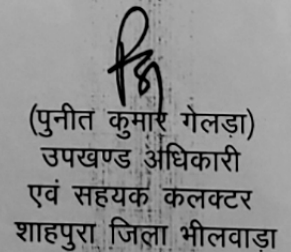 (पुनीत कुमार गेलड़ा)
उपखण्ड अधिकारी
एवं सहयक कलक्टर
शाहपुरा जिला भीलवाडा